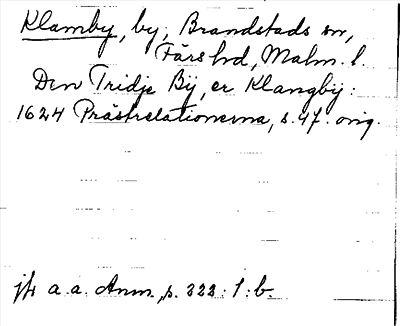 Klamby, by, Brandstads sn,
Färs hd, Malm. l.
Den Tridje Bÿ, er Klangbÿ:
1624 Prästrelationerna, s. 47. orig.
jfr a. a. Anm., s. 222: 1: b.